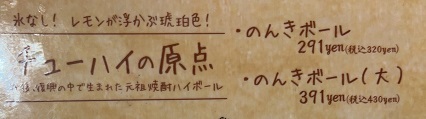 氷なし！レモンが浮かぶ琥珀色！
チューハイの原点
後、復興の中で生まれた元祖焼酎ハイボール
・のんきボール
291yen(税込320yen)
・のんきボール(大)
391yen(税込430yen)